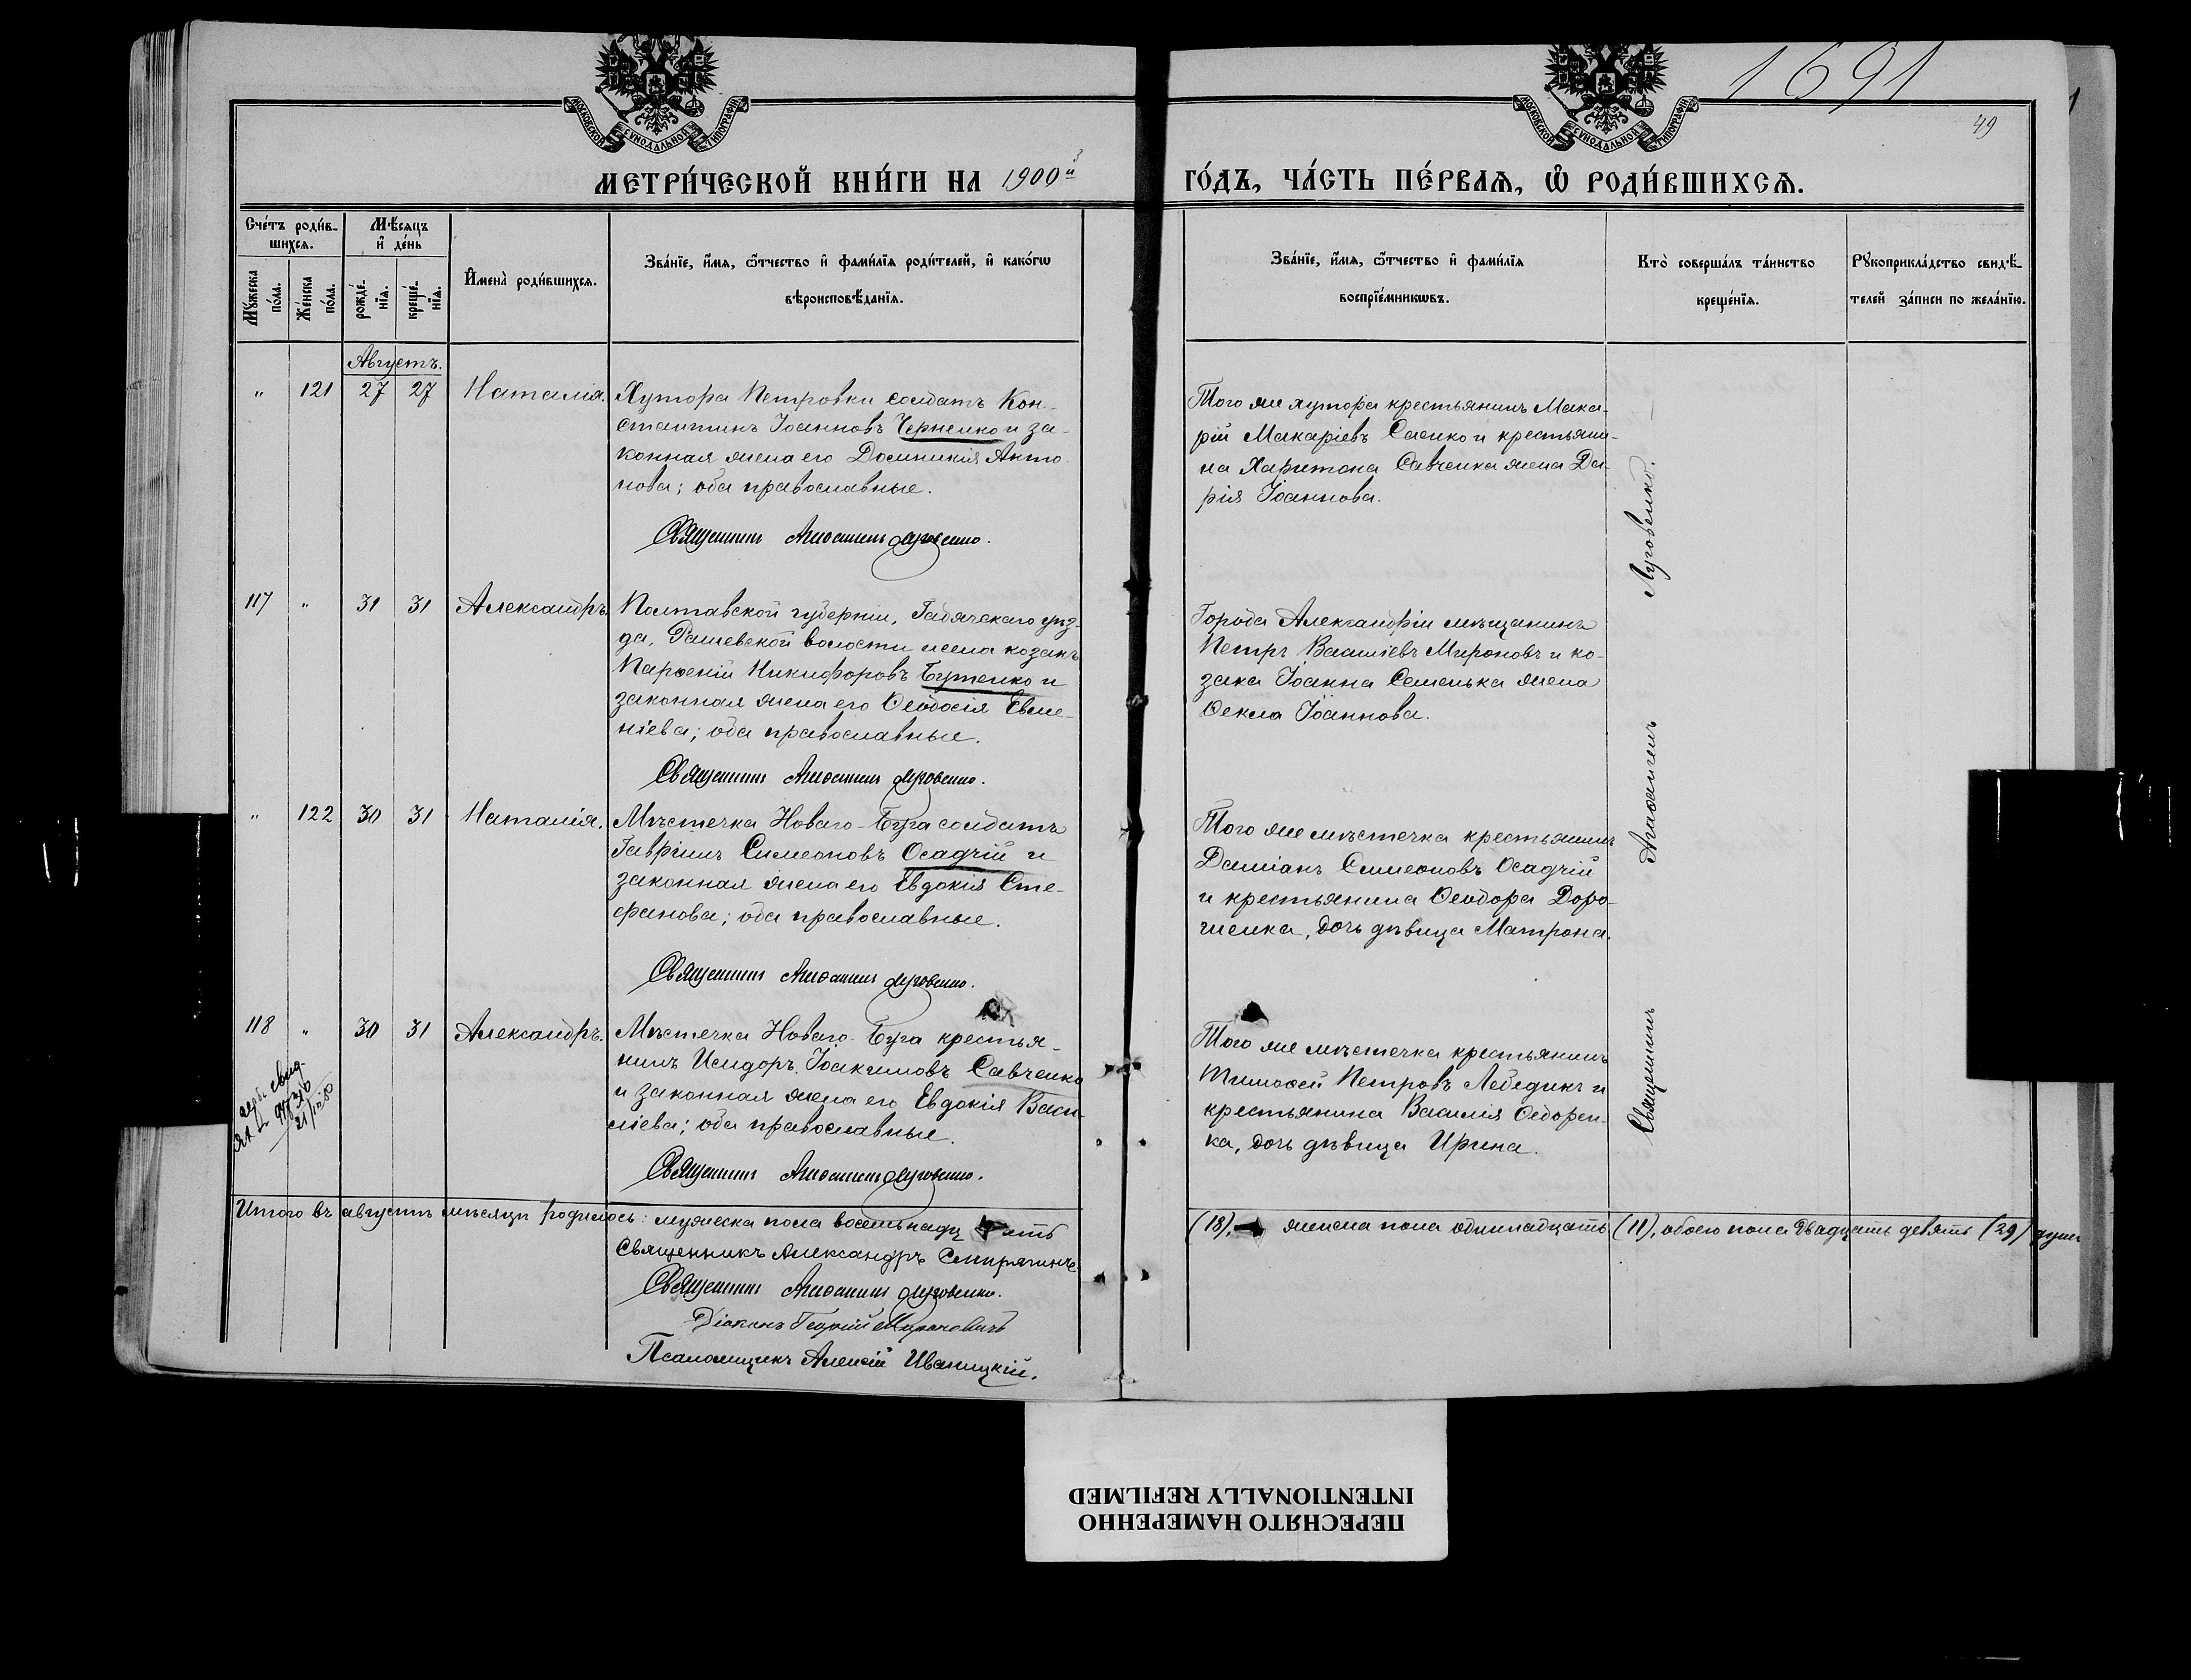 1691
49
МОСКОВСКОЙ СѴНОДАЛЬНОЙ ТИПОГРАФІИ
МОСКОВСКОЙ СѴНОДАЛЬНОЙ ТИПОГРАФІИ
МЕТРИ́ЧЕСКОЙ КНИ́ГИ НА 1900й
ГО́ДЪ, ЧА́СТЬ ПЕ́РВАЯ, Ѡ҆ РОДИ́ВШИХСЯ.
Сче́тъ роди́в-
шихся.
Мꙋ́жеска по́ла.
Же́нска по́ла.
Мѣ́сяцъ
и҆ де́нь
рожде́-
нїя.
креще́-
нїя.
И҆мена̀ роди́вшихся.
Зва́нїе, и҆́мя, ѻ҆́тчество и҆ фами́лїя роди́телей, и҆ како́гѡ
вѣроисповѣ́данїя.
Зва́нїе, и҆́мя, ѻ҆́тчество и҆ фами́лїя
воспрїе́мникѡвъ.
Кто̀ соверша́лъ та́инство
креще́нїя.
Рꙋкоприкла́дство свидѣ́-
телей за́писи по жела́нїю.
Августъ.
" 121 27 27 Наталія.
Хутора Петровки солдатъ Кон-
стантинъ Іоанновъ Черненко и за-
конная жена его Домникія Анто-
нова; оба православные.
Священникъ Агаѳангелъ Луговенко.
Того же хутора крестьянинъ Мака-
рій Макаріевъ Саенко и крестьяни-
на Харитона Савченка жена Да-
рія Іоаннова.
117 " 31 31 Александръ.
Полтавской губерніи, Гадячскаго уѣз-
да, Рашевской волости козакъ
Парѳеній Никифоровъ Бутенко и
законная жена его Ѳеодосія Евме-
ніева; оба православные.
Священникъ Агаѳангелъ Луговенко.
Города Александріи мѣщанинъ
Петръ Василіевъ Мироновъ и ко-
зака Іоанна Семенька жена
Ѳекла Іоаннова.
" 122 30 31 Наталія.
Мѣстечка Новаго-Буга солдатъ
Гавріилъ Симеоновъ Осадчій и
законная жена его Евдокія Сте-
фанова; оба православные.
Священникъ Агаѳангелъ Луговенко.
Того же мѣстечка крестьянинъ
Даміанъ Симеоновъ Осадчій
и крестьянина Ѳеодора Доро-
шенка, дочь дѣвица Матрона.
118 " 30 31 Александръ.
Мѣстечка Новаго-Буга крестья-
нинъ Исидоръ Іоакимовъ Савченко
и законная жена его Евдокія Васи-
ліева; оба православные.
Священникъ Агаѳангелъ Луговенко.
Того же мѣстечка крестьянинъ
Тимоѳей Петровъ Лебедикъ и
крестьянина Василія Ѳедорен-
ка, дочь дѣвица Ирина.
Священникъ Агаѳангелъ Луговенко.
Итого въ августѣ мѣсяцѣ родилось: мужеска пола восемнадцать
(18), женска пола одиннадцать (11), обоего пола двадцать девять (29) душъ
Священникъ Александръ Смирягинъ
Священникъ Агаѳангелъ Луговенко.
Діаконъ Георгій
Псаломщикъ Алексій Иваницкій.
ПЕРЕСНЯТО НАМЕРЕННО
INTENTIONALLY REFILMED